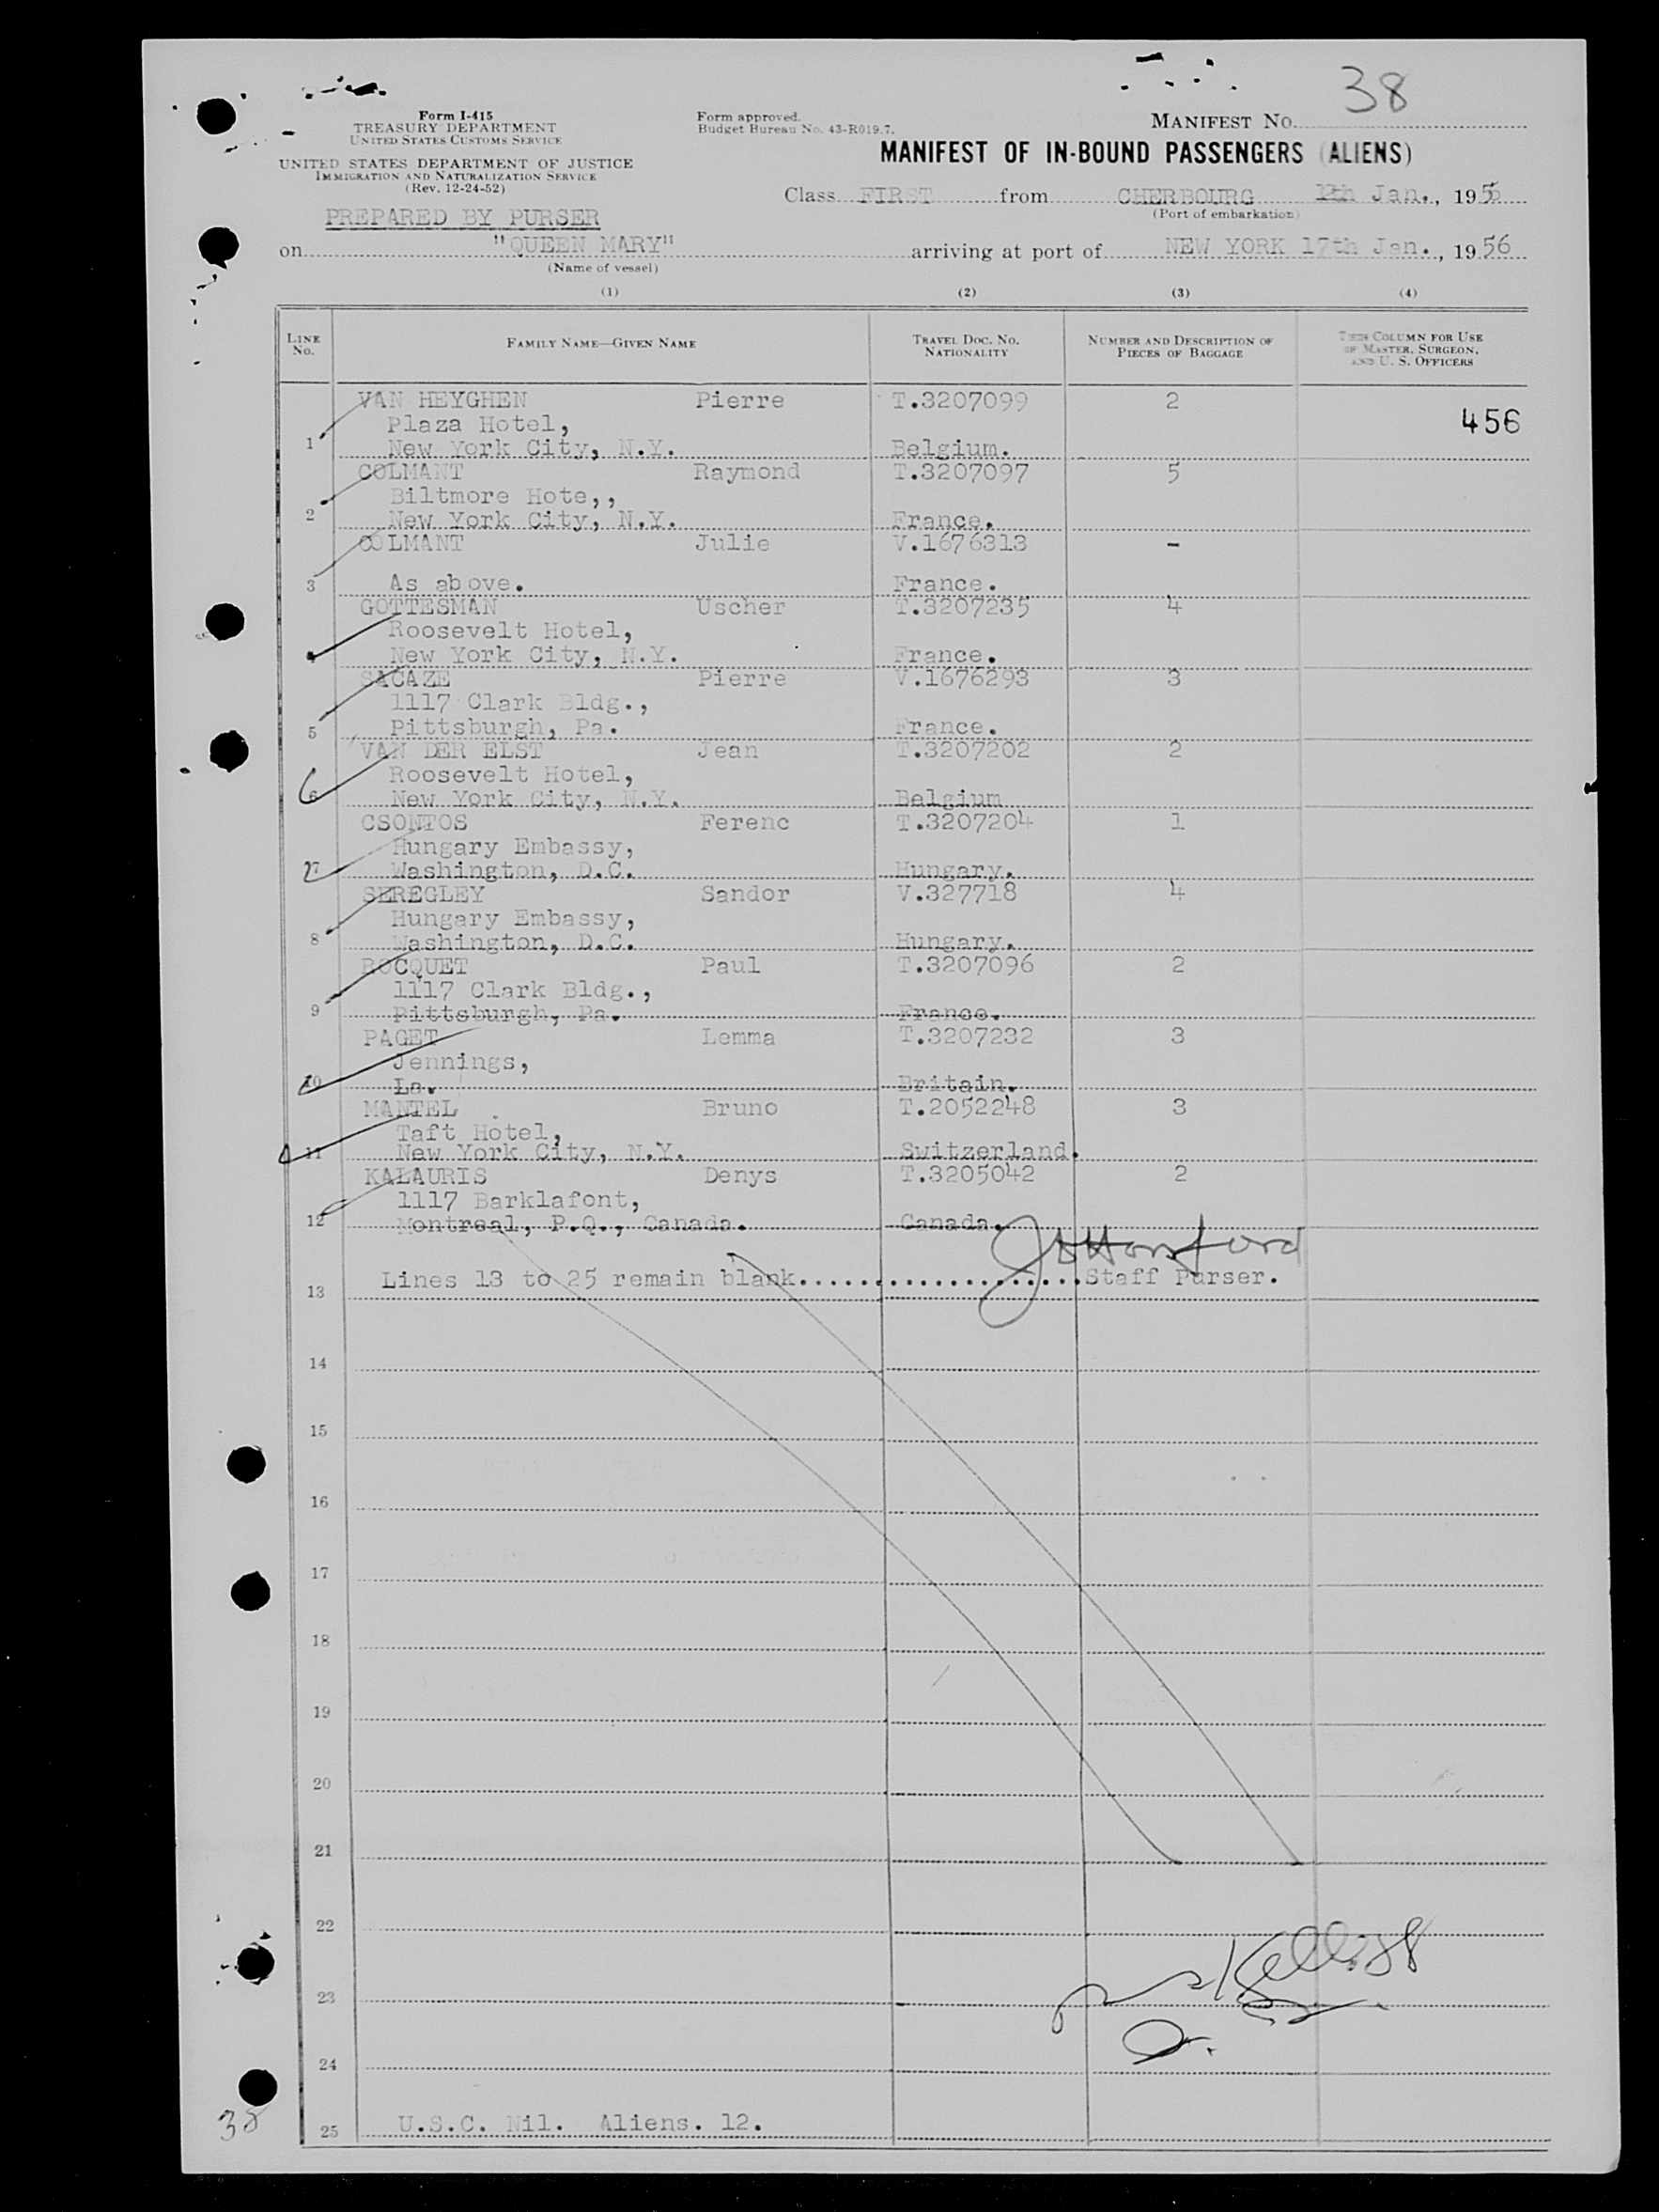 38
Form I-415
TREASURY DEPARTMENT
UNITED STATES CUSTOMS SERVICE
UNITED STATES DEPARTMENT OF JUSTICE
IMMIGRATION AND NATURALIZATION SERVICE
(Rev. 12-24-52)
Form approved.
Budget Bureau No. 43-R019.7.
MANIFEST No.
MANIFEST OF IN-BOUND PASSENGERS (ALIENS)
Class FIRST from CHERBOURG Jan., 195
(Port of embarkation)
PREPARED BY PURSER
on "QUEEN MARY" arriving at port of NEW YORK 17th Jan., 1956
(Name of vessel)
(1) (2) (3) (4)
LINE No. FAMILY NAME—GIVEN NAME TRAVEL DOC. NO. NATIONALITY NUMBER AND DESCRIPTION OF PIECES OF BAGGAGE THIS COLUMN FOR USE OF MASTER, SURGEON, AND U. S. OFFICERS
VAN HEYGHEN Pierre T.3207099 2
Plaza Hotel, 456
1 New York City, N.Y. Belgium.
COLMANT Raymond T.3207097 5
Biltmore Hote,,
2 New York City, N.Y. France.
COLMANT Julie V.1676313 -
3 As above. France.
GOTTESMAN Uscher T.3207235 4
Roosevelt Hotel,
4 New York City, N.Y. France.
SACAZE Pierre V.1676293 3
1117 Clark Bldg.,
5 Pittsburgh, Pa. France.
VAN DER ELST Jean T.3207202 2
Roosevelt Hotel,
6 New York City, N.Y. Belgium
CSONTOS Ferenc T.3207204 1
Hungary Embassy,
7 Washington, D.C. Hungary.
SEREGLEY Sandor V.327718 4
Hungary Embassy,
8 Washington, D.C. Hungary.
ROCQUET Paul T.3207096 2
1117 Clark Bldg.,
9 Pittsburgh, Pa. France.
PAGET Lemma T.3207232 3
Jennings,
10 La. Britain.
MANTEL Bruno T.2052248 3
Taft Hotel,
11 New York City, N.Y. Switzerland.
KALAURIS Denys T.3205042 2
1117 Barklafont,
12 Montreal, P.Q., Canada. Canada.
Lines 13 to 25 remain blank.....................Staff Purser.
13
14
15
16
17
18
19
20
21
22
23
24
38
25 U.S.C. Nil. Aliens. 12.